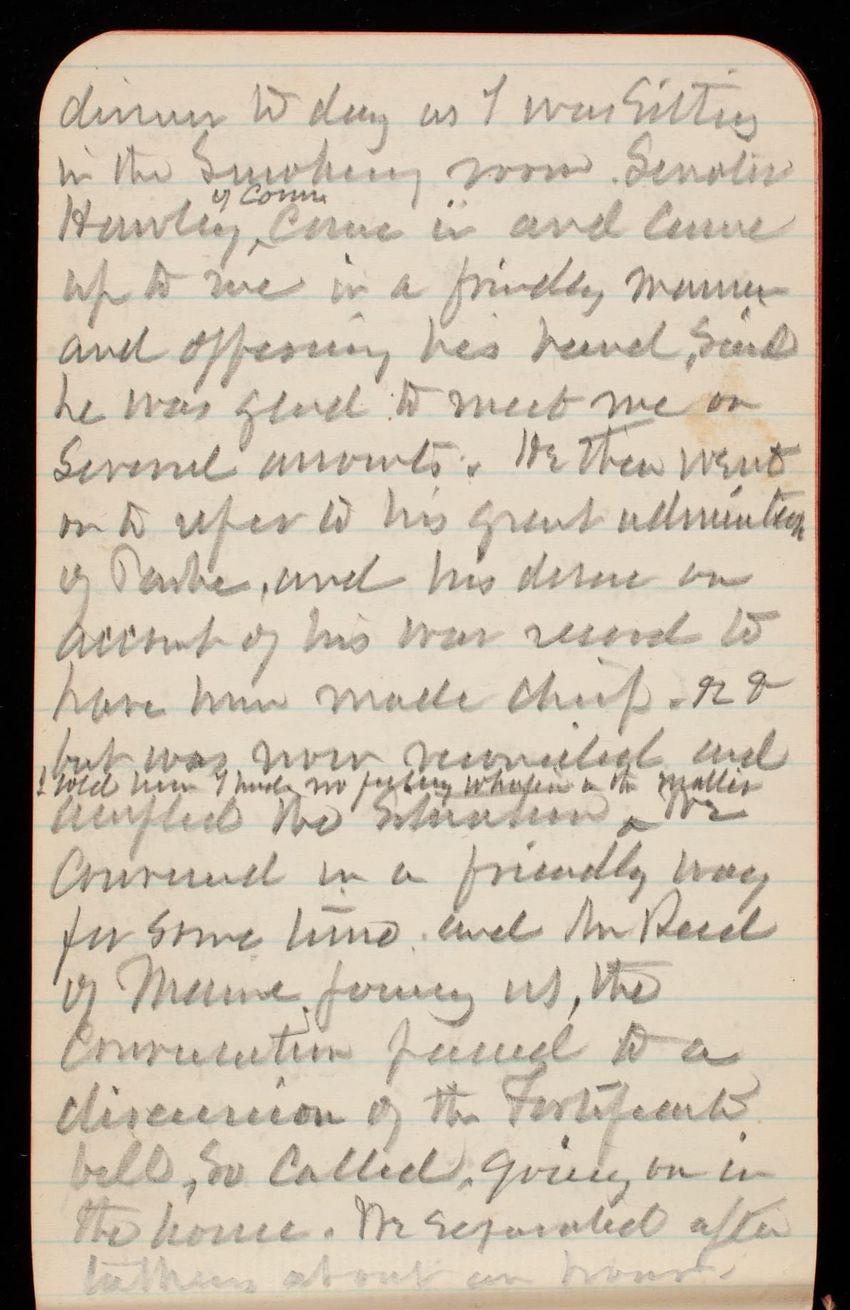 dinner to day as I was Sitting
in the Smoking room. Senator
of Conn
Hawley, Came in and Came
up to me in a friendly manner
and offering his hand, Said
he was glad to meet me on
Several accounts. He then went
on to refer to his great admiration
of Parke, and his desire on
account of his war record to
have him made Chief. &c &
but was now reconciled and
I told him I had no feeling whatever in the matter
accepted the Situation, We
Conversed in a friendly way
for some time. and Mr Reed
of Maine joining us, the
Conversation passed to a
discussion of the Fortificat
bill, So Called, going on in
the house. We separated after
talking about an hour.